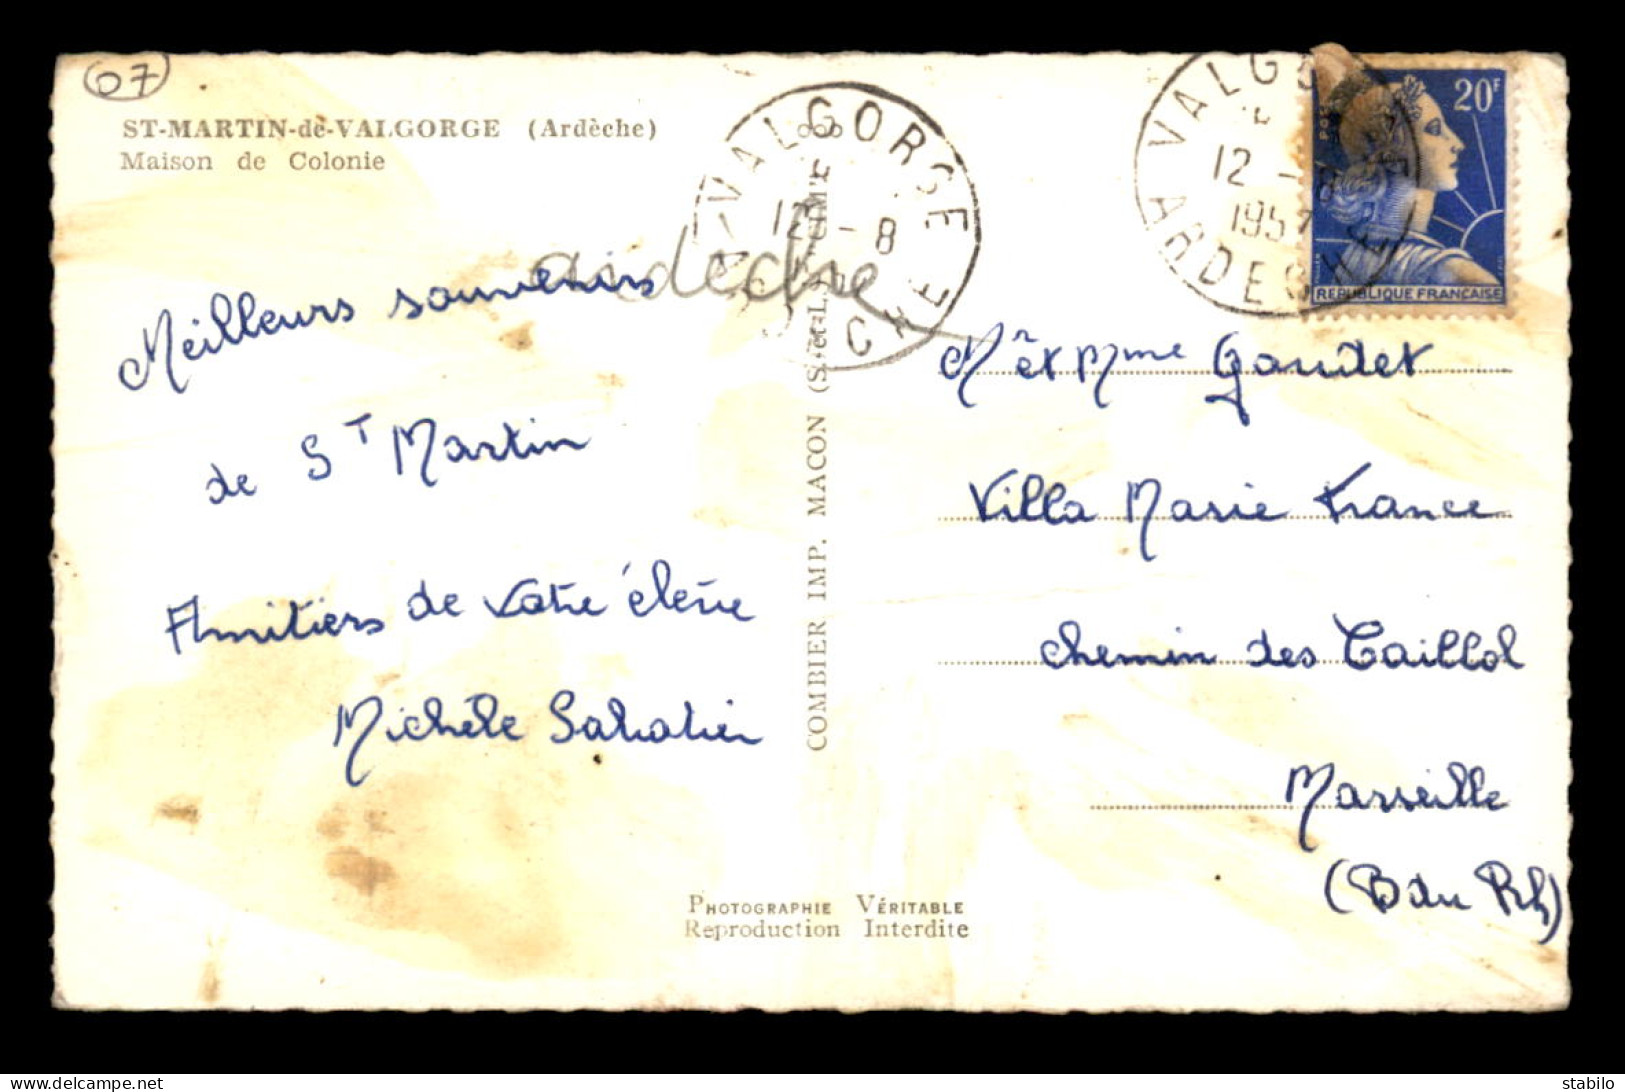 07
ST-MARTIN-de-VALGORGE (Ardèche)
Maison de Colonie
VALGORGE
12 - 8
ARDÈCHE
VALGORGE
12 - 8
1957
ARDECHE
20F
POSTES
REPUBLIQUE FRANÇAISE
ardèche
Meilleurs souvenirs
de ST Martin
Amitiers de votre élève
Michèle Sabatier
COMBIER IMP. MACON
Mr et Mme Gaudet
Villa Marie France
chemin des Caillol
Marseille
(B du Rh)
PHOTOGRAPHIE VÉRITABLE
Reproduction Interdite
stabilo